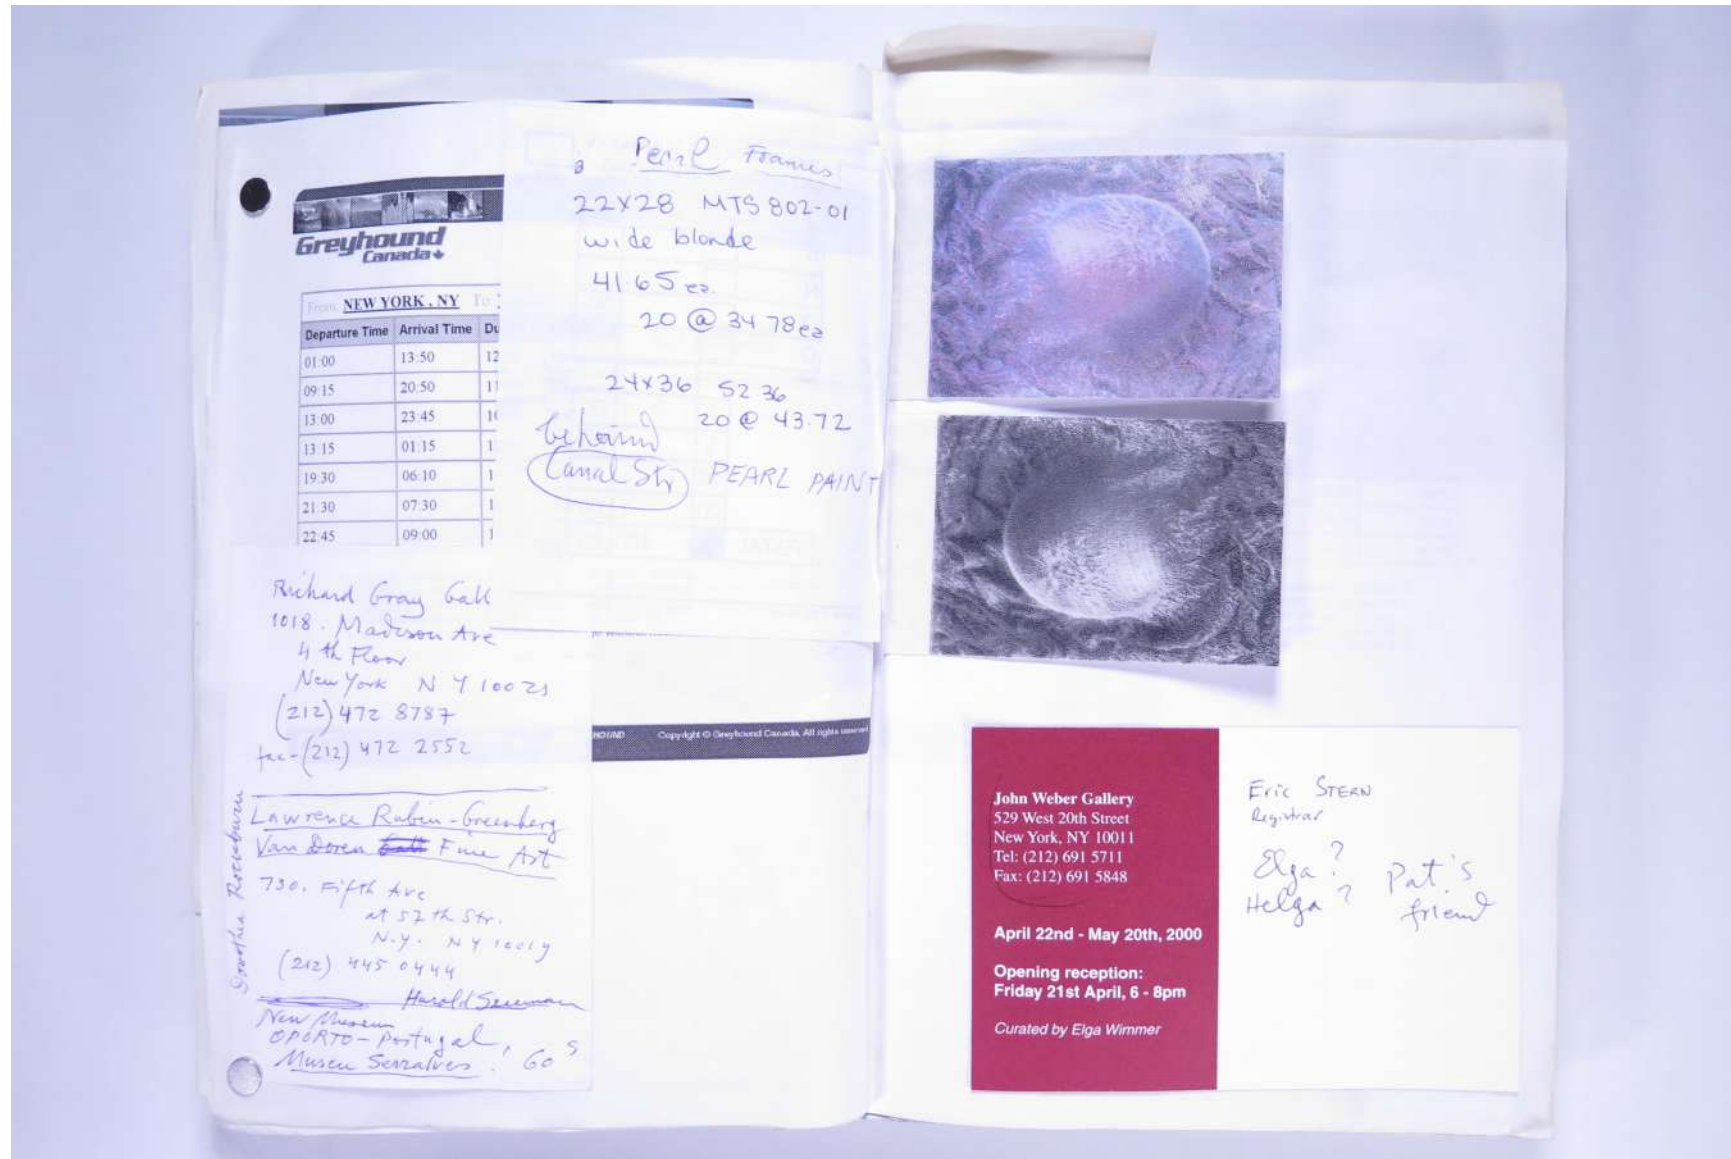 Greyhound
Canada
From NEW YORK, NY To
Departure Time Arrival Time Du
01:00 13:50 12
09:15 20:50 11
13:00 23:45 10
13:15 01:15 1
19:30 06:10 1
21:30 07:30 1
22:45 09:00 1
Pearl Frames
22X28 MTS 802-01
wide blonde
41.65 ea.
20 @ 34 78 ea
24x36 52 36
20 @ 43.72
behind
Canal Str PEARL PAINT
Richard Gray Gall
1018. Madison Ave
4 th Floor
New York N Y 10021
(212) 472 8787
fax-(212) 472 2552
HOUND Copyright © Greyhound Canada, All rights reserved
Dorothea
Lawrence Rubin-Greenberg
Van Doren Gall Fine Art
730. Fifth Ave
at 57 th Str.
N.Y. NY 10019
(212) 445 0444
Harold
New Museum
OPORTO-Portugal,
Museu Serralves. 60s
John Weber Gallery
529 West 20th Street
New York, NY 10011
Tel: (212) 691 5711
Fax: (212) 691 5848
April 22nd - May 20th, 2000
Opening reception:
Friday 21st April, 6 - 8pm
Curated by Elga Wimmer
Eric STERN
Registrar
Elga?
Helga? Pat's
friend